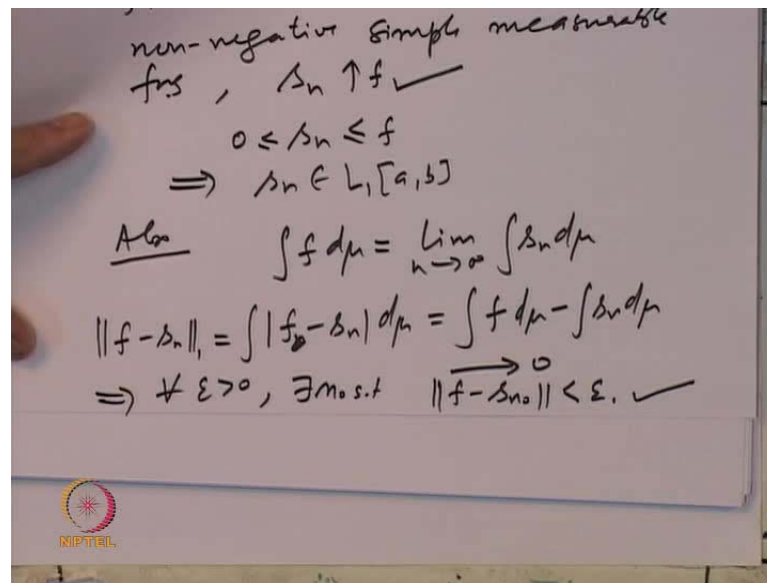 non-negative simple measurable
fns , sn ↑ f ✓
0 ≤ sn ≤ f
⇒ sn ∈ L1 [a, b]
Also ∫ f dμ = Lim n→∞ ∫ sn dμ
||f - sn||1 = ∫ |f - sn| dμ = ∫ f dμ - ∫ sn dμ
→ 0
⇒ ∀ ε > 0, ∃ n0 s.t ||f - sn0|| < ε. ✓
NPTEL